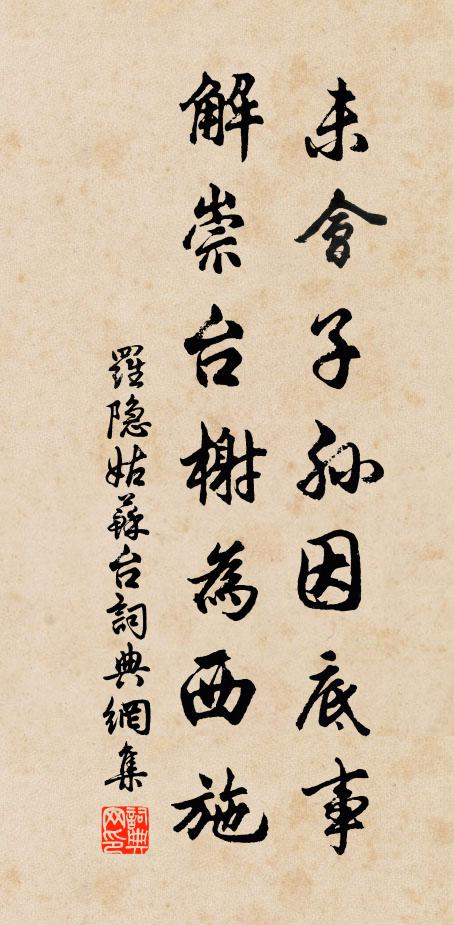 未會子孫因底事
解崇台榭為西施
羅隐姑蘇台詞典網集
詞典网印